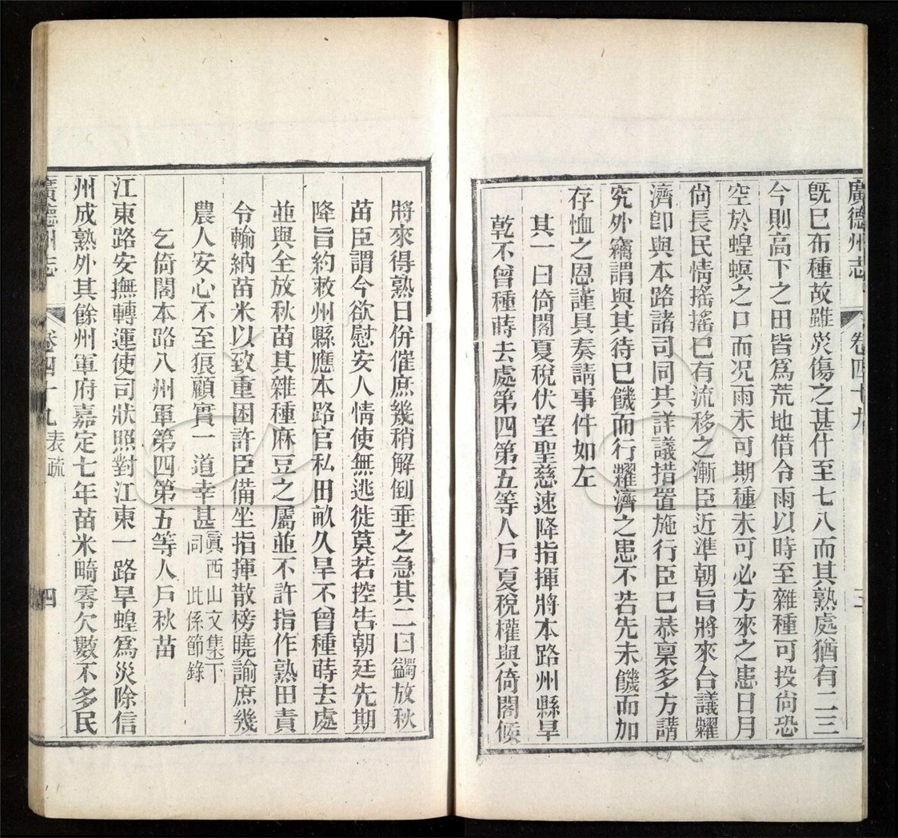 廣德州志
卷四十九
三
既已布種故雖災傷之甚什至七八而其熟處猶有二三
今則高下之田皆爲荒地借令雨以時至雜種可投尙恐
空於蝗螟之口而况雨未可期種未可必方來之患日月
尙長民情搖搖已有流移之漸臣近準朝旨將來合議糶
濟卽與本路諸司同其詳議措置施行臣已恭稟多方講
究外竊謂與其待已饑而行糶濟之患不若先未饑而加
存恤之恩謹具奏請事件如左
其一曰倚閣夏稅伏望聖慈速降指揮將本路州縣旱
乾不曾種蒔去處第四第五等人戸夏稅權與倚閣候
將來得熟日併催庶幾稍解倒垂之急其二曰蠲放秋
苗臣謂今欲慰安人情使無逃徙莫若控吿朝廷先期
降旨約敕州縣應本路官私田畝久旱不曾種蒔去處
並與全放秋苗其雜種麻豆之屬並不許指作熟田責
令輸納苗米以致重困許臣備坐指揮散榜曉諭庶幾
農人安心不至狼顧實一道幸甚眞西山文集下
詞此係節錄
乞倚閣本路八州軍第四第五等人戸秋苗
江東路安撫轉運使司狀照對江東一路旱蝗爲災除信
州成熟外其餘州軍府嘉定七年苗米畸零欠數不多民
廣德州志
卷四十九
表疏
四